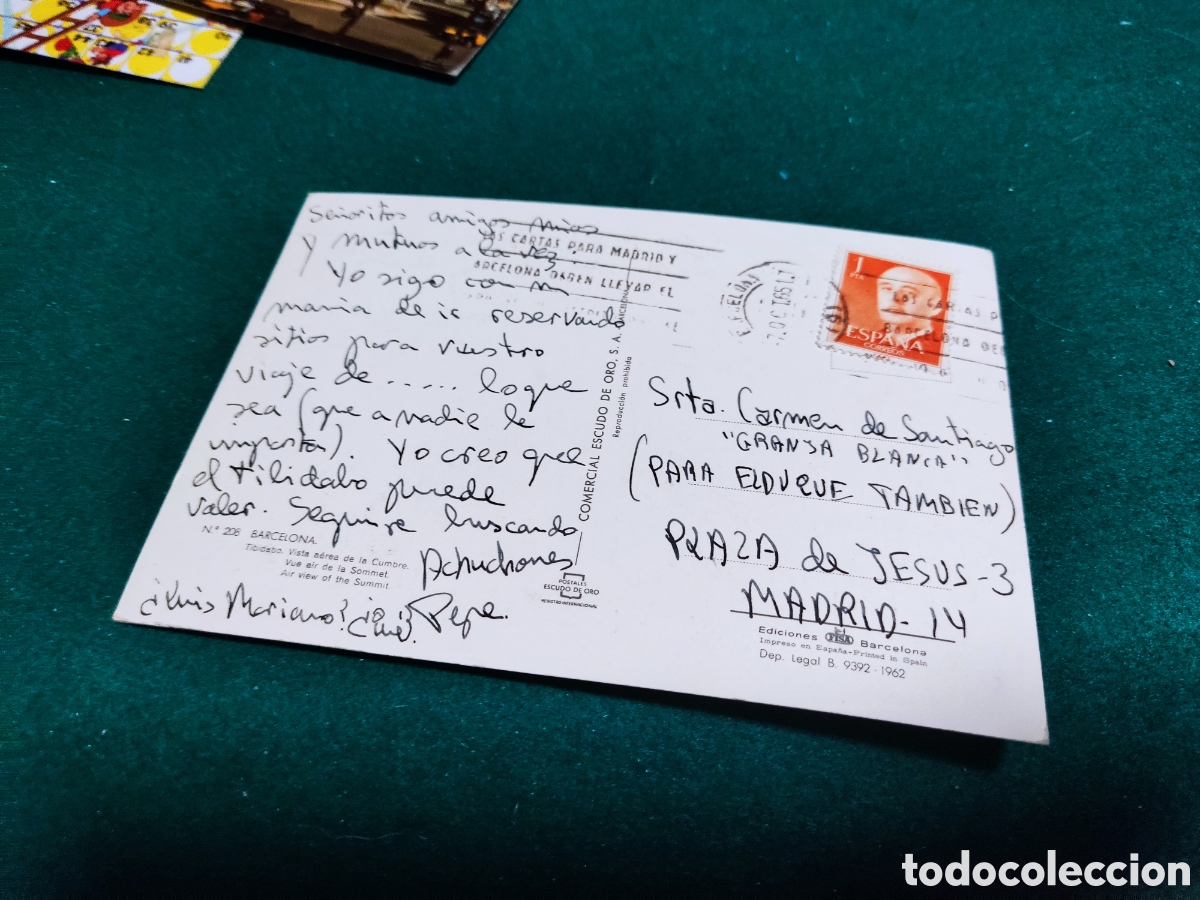 Señoritos amigos mios
y mutuos a la vez.
Yo sigo con mi
mania de ir reservando
sitios para vuestro
viaje de ..... lo que
sea (que a nadie le
importa). Yo creo que
el tilidabo puede
valer. Seguire buscando
Achuchones
¿Luis Mariano? Pepe.
N.º 208 BARCELONA.
Tibidabo. Vista aérea de la Cumbre.
Vue air de la Sommet.
Air view of the Summit.
COMERCIAL ESCUDO DE ORO, S. A. BARCELONA
Reproducción prohibida
POSTALES
ESCUDO DE ORO
REGISTRO INTERNACIONAL
LAS CARTAS PARA MADRID Y
BARCELONA DEBEN LLEVAR EL
OCT 65
1
PTA
ESPAÑA
CORREOS
LAS CARTAS P
BARCELONA DE
Srta. Carmen de Santiago
"GRANJA BLANCA"
(PARA EL DUQUE TAMBIEN)
PLAZA de JESUS-3
MADRID-14
Ediciones FISA Barcelona
Impreso en España-Printed in Spain
Dep. Legal B. 9392-1962
todocoleccion